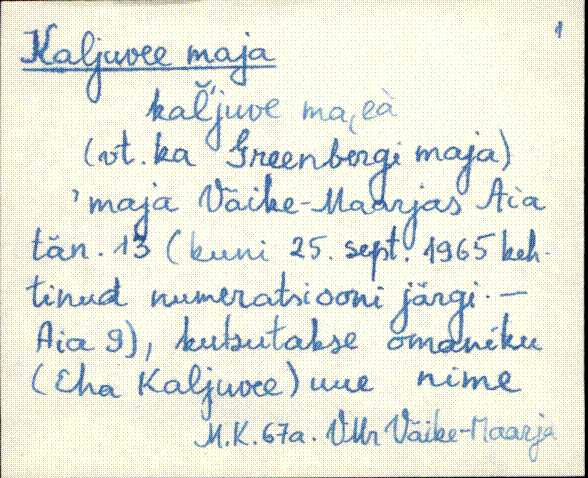 1
Kaljuvee maja
kal̆'juve ma,eà
(vt. ka Greenbergi maja)
'maja Väike-Maarjas Aia
tän. 13 (kuni 25. sept. 1965 keh-
tinud numeratsiooni järgi. —
Aia 9), kutsutakse omaniku
(Eha Kaljuvee) uue nime
M.K. 67a. VMr Väike-Maarja